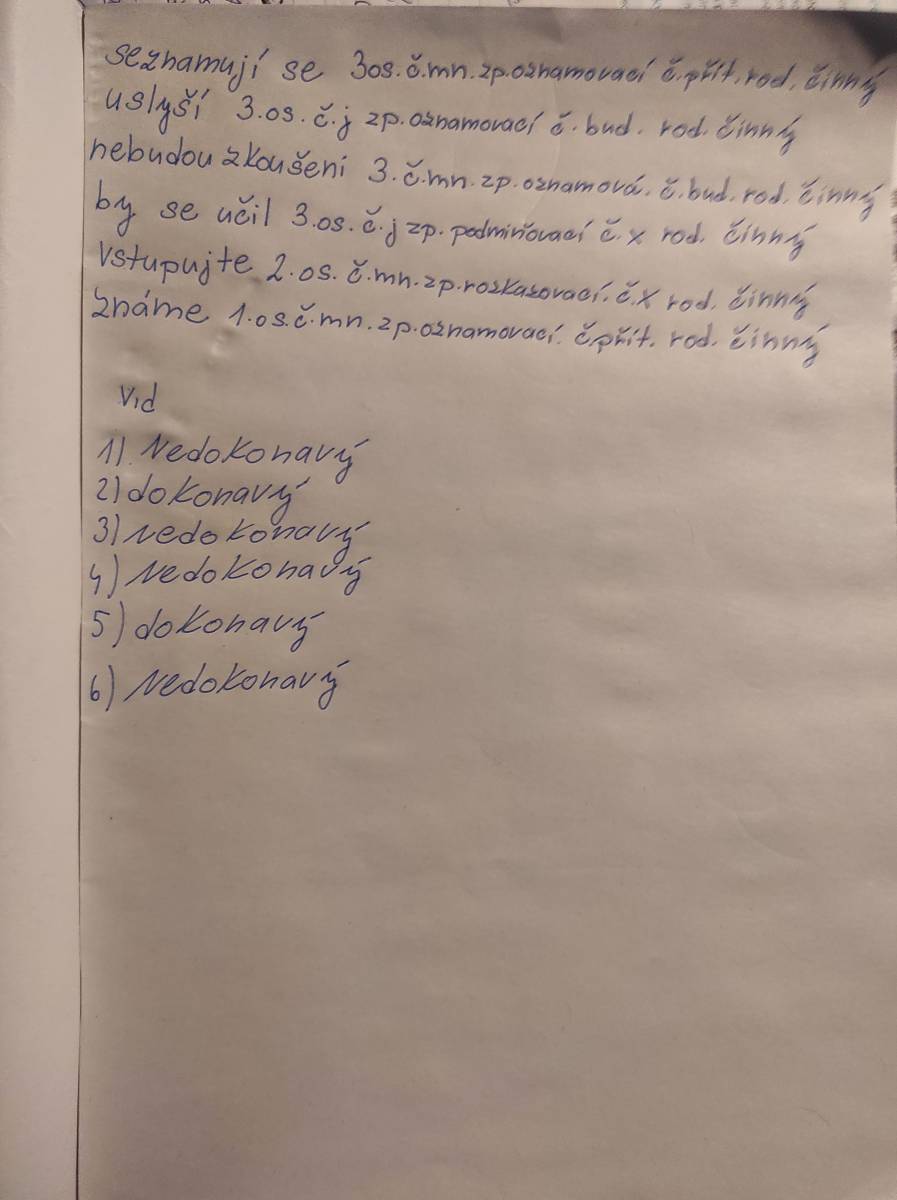 seznamují se 3os. č.mn. zp. oznamovací č.přít. rod. činný
uslyší 3.os. č.j zp. oznamovací č. bud. rod. činný
nebudou zkoušeni 3. č.mn. zp. oznamová. č. bud. rod. činný
by se učil 3.os. č.j zp. podmiňovací č. x rod. činný
Vstupujte 2.os. č.mn. zp. rozkazovací. č.x rod. činný
známe 1.os. č.mn. zp. oznamovací. č.přít. rod. činný
Vid
1) Nedokonavý
2) dokonavý
3) nedokonavý
4) Nedokonavý
5) dokonavý
6) Nedokonavý